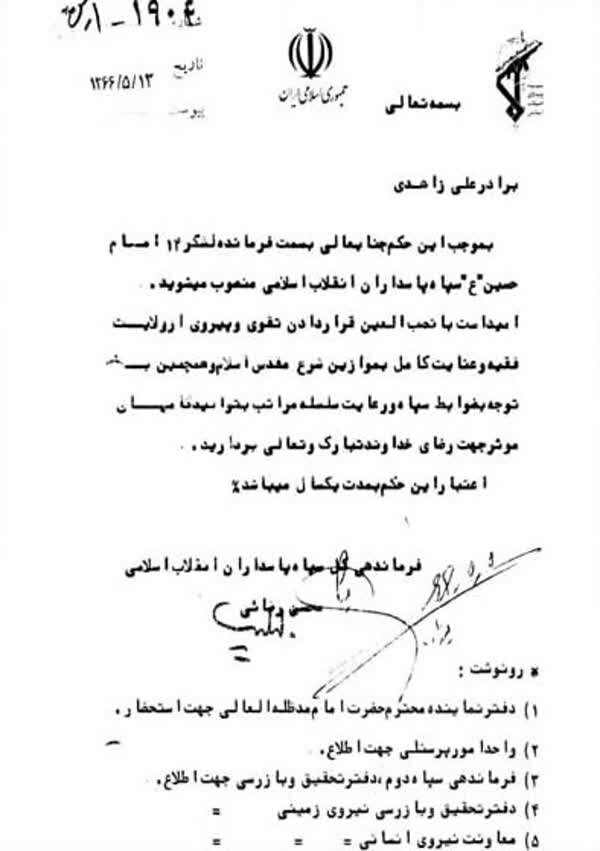 شماره ۱۹۰۴-۱
تاریخ ۱۳۶۶/۵/۱۳
پیوست
جمهوری اسلامی ایران
بسمه تعالی
برادر علی زاهدی
بموجب این حکم جنابعالی بسمت فرمانده لشگر ۱۴ امام
حسین "ع" سپاه پاسداران انقلاب اسلامی منصوب میشوید.
امیداست با نصب العین قراردادن تقوی و پیروی از ولایت
فقیه و عنایت کامل بموازین شرع مقدس اسلام و همچنین با
توجه بضوابط سپاه و رعایت سلسله مراتب بتوانید گامهای
موثر جهت رضای خداوند تبارک و تعالی بردارید.
اعتبار این حکم بمدت یکسال میباشد٪
فرماندهی کل سپاه پاسداران انقلاب اسلامی
محسن رضائی
* رونوشت :
۱) دفتر نماینده محترم حضرت امام مدظله العالی جهت استحضار.
۲) واحد امور پرسنلی جهت اطلاع.
۳) فرماندهی سپاه دوم، دفتر تحقیق و بازرسی جهت اطلاع.
۴) دفتر تحقیق و بازرسی نیروی زمینی =
۵) معاونت نیروی انسانی = = =